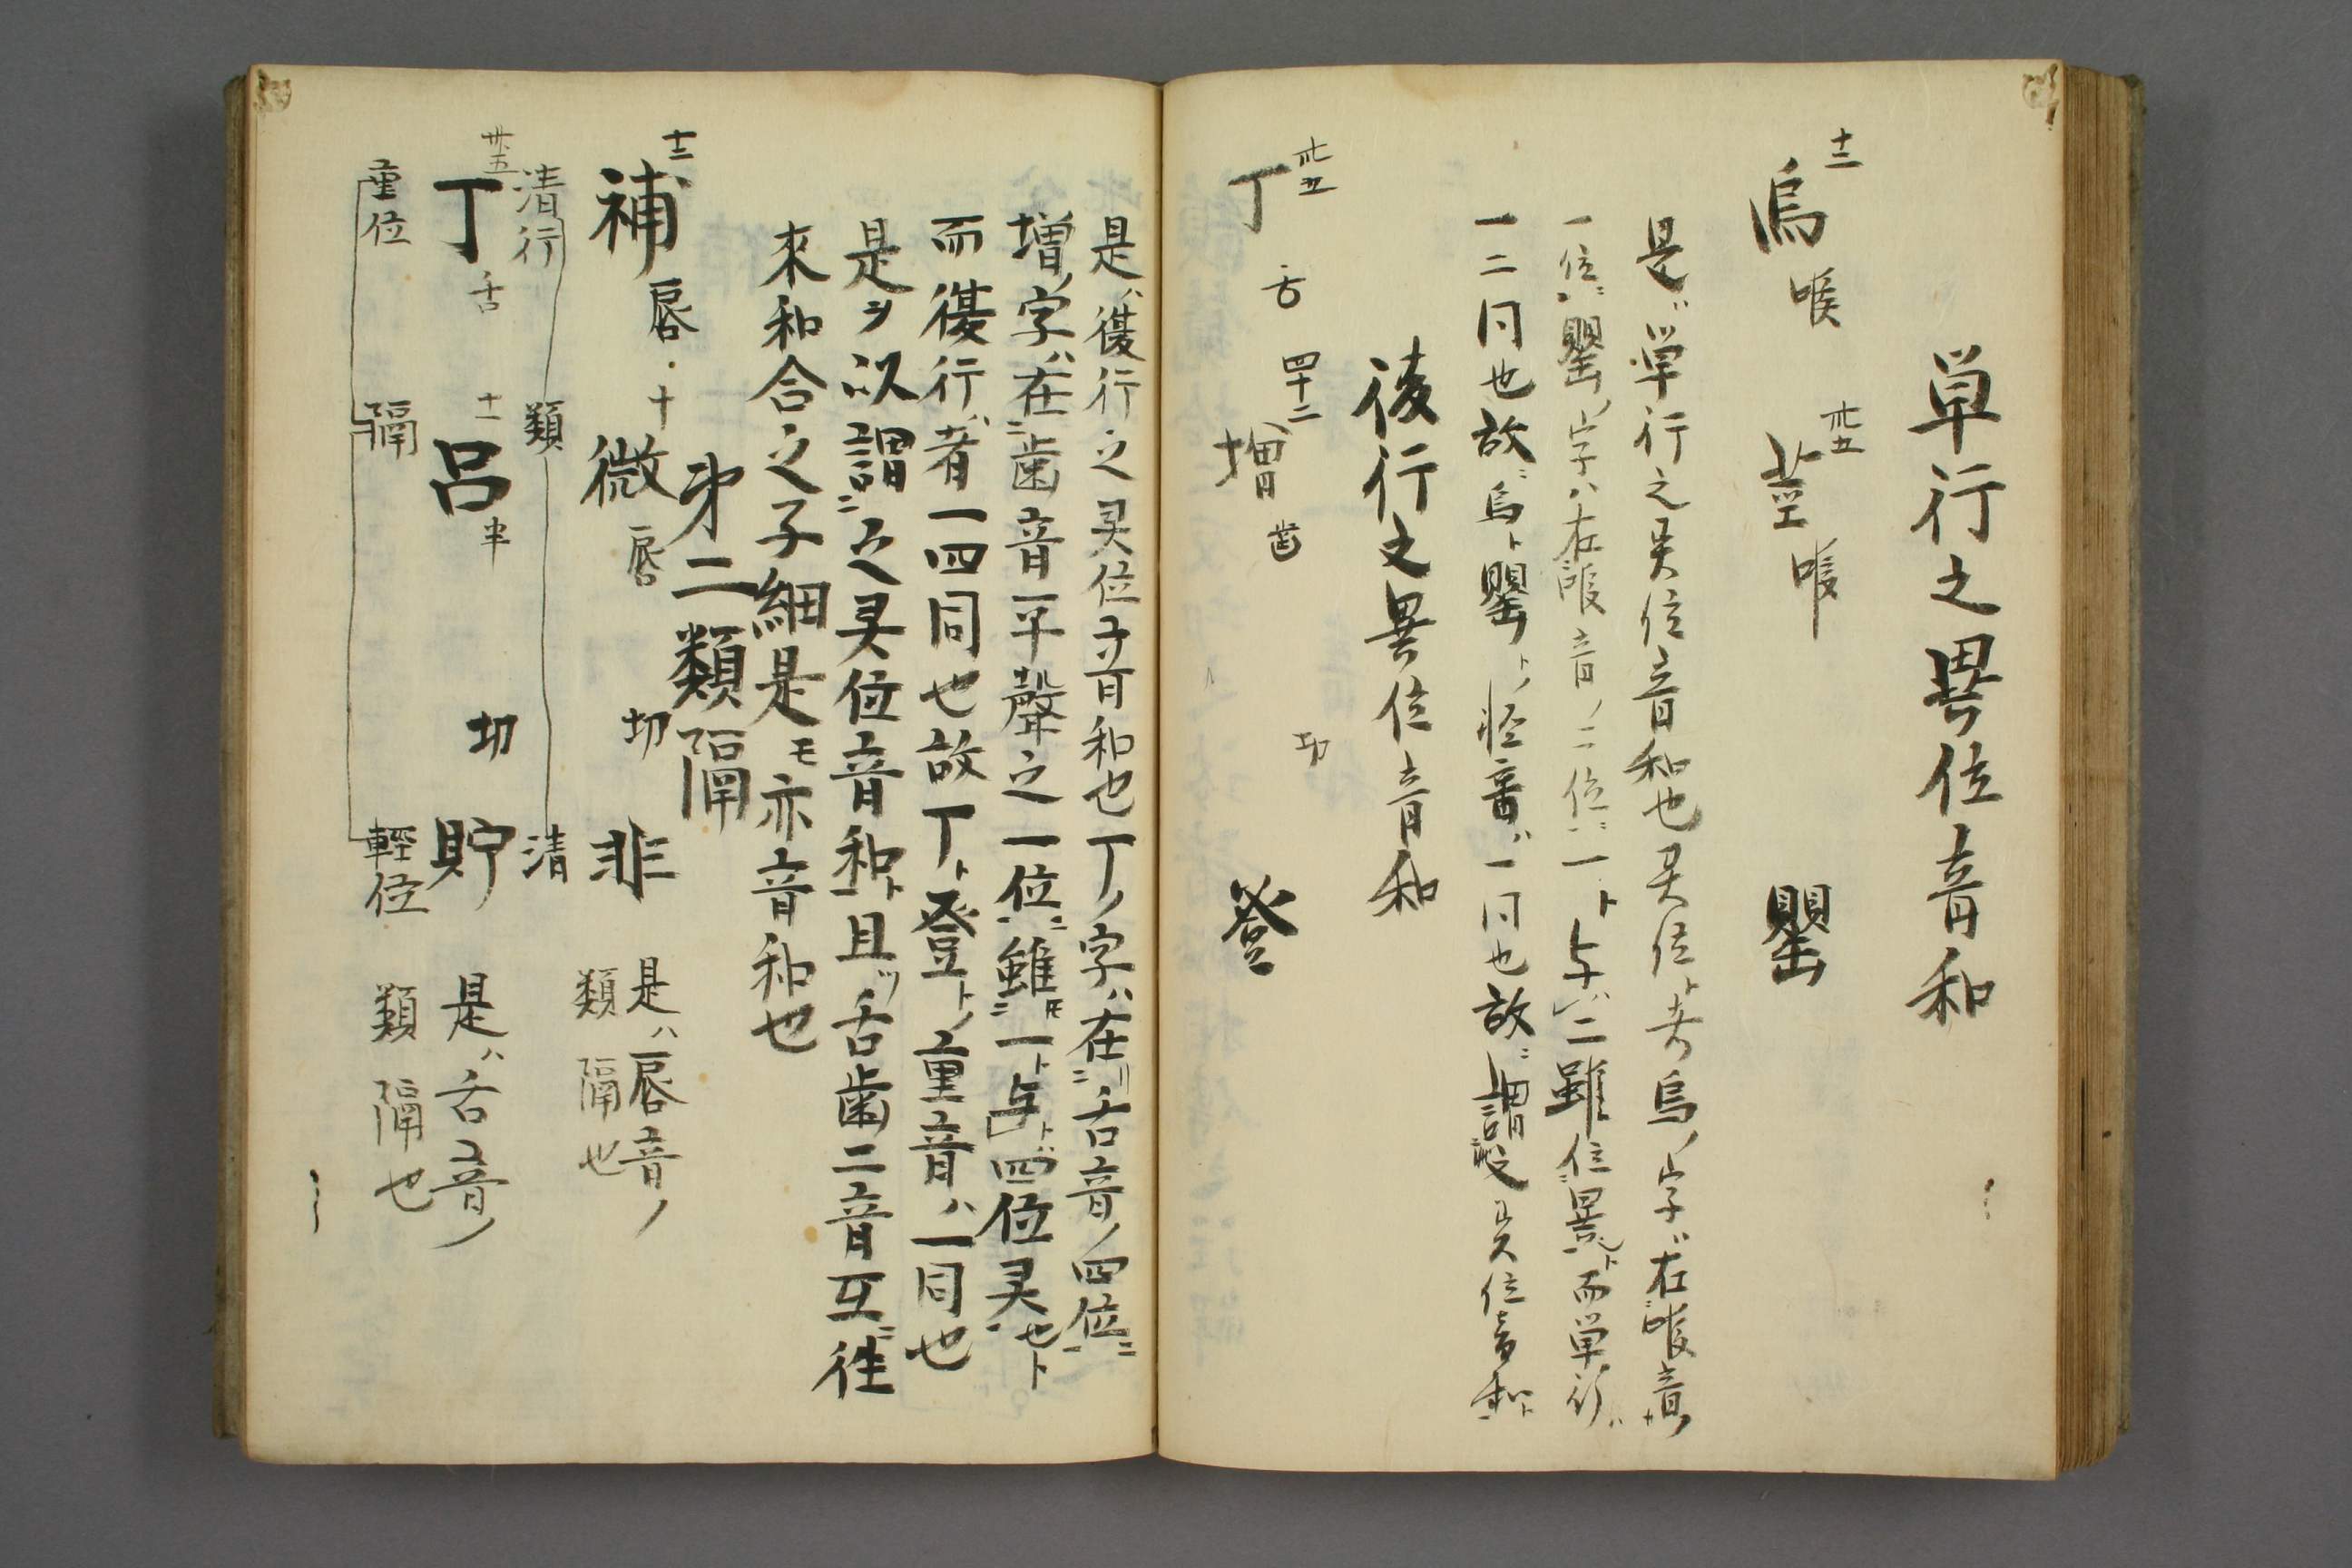 単行之異位音和
十三
烏 喉 卅五 莖 喉 罌
是ハ単行之異位音和也異位ト者烏ノ字ハ在喉音ノ
一位ニ罌ノ字ハ在喉音ノ二位ニ一ト与ハ二雖位異ト而単行ハ
一二同也故ニ烏ト罌トノ軽音ハ一同也故ニ謂之異位音和ト
復行之異位音和
卅五
丁 舌 四十二 増 歯 切 登
是ハ復行之異位音和也丁ノ字ハ在舌音ノ四位ニ
増ノ字ハ在歯音平聲之一位ニ雖モ一ト与ト四位異也ト
而復行ハ者一四同也故丁ト登トノ重音ハ一同也
是ヲ以謂之異位音和ト且ツ舌歯二音互ニ往
來和合之子細是モ亦音和也
第二類隔
十三
補 唇 十 微 唇 切 非 是ハ唇音ノ
類隔也
清行 類 清
卅五
丁 舌 十一 呂 半 切 貯 是ハ舌音ノ
類隔也
重位 隔 軽位